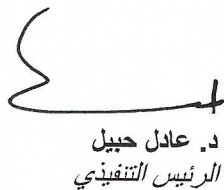 د. عادل حبيل
الرئيس التنفيذي